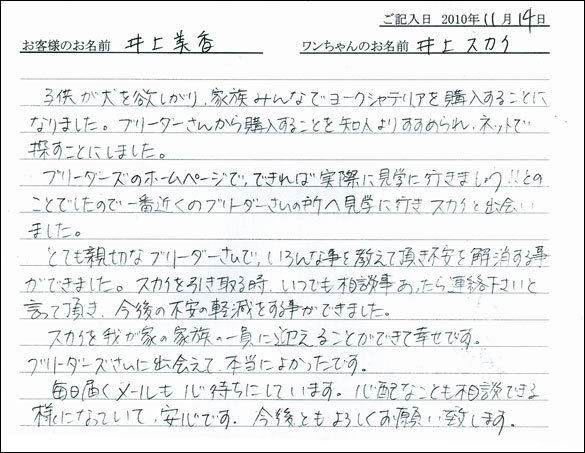 ご記入日 2010年11月14日
お客様のお名前 井上美香 ワンちゃんのお名前 井上スカイ
子供が犬を欲しがり、家族みんなでヨークシャテリアを購入することに
なりました。ブリーダーさんから購入することを知人よりすすめられ、ネットで
探すことにしました。
ブリーダーズのホームページで、できれば実際に見学に行きましょう!!との
ことでしたので一番近くのブリーダーさんの所へ見学に行きスカイと出会い
ました。
とても親切なブリーダーさんで、いろんな事を教えて頂き不安を解消する事
ができました。スカイを引き取る時、いつでも相談事あったら連絡下さいと
言って頂き、今後の不安の軽減をする事ができました。
スカイを我が家の家族の一員に迎えることができて幸せです。
ブリーダーズさんに出会えて、本当によかったです。
毎日届くメールも心待ちにしています。心配なことも相談できる
様になっていて、安心です。今後ともよろしくお願い致します。